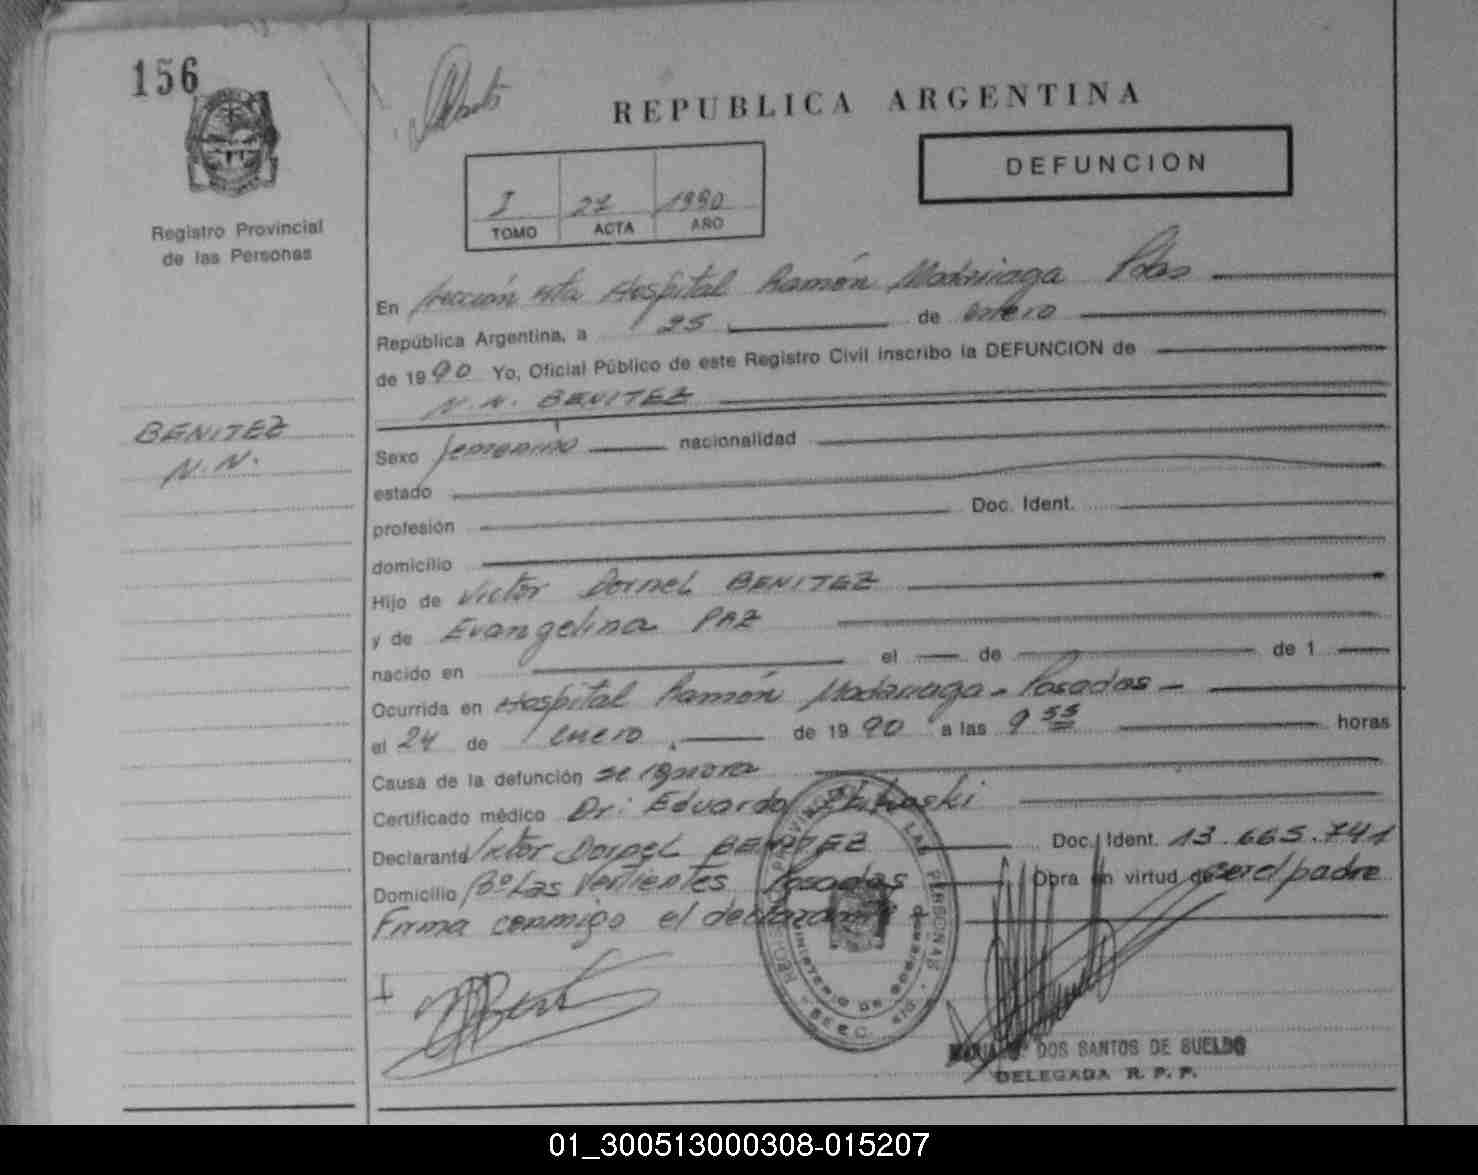 156
REPUBLICA ARGENTINA
DEFUNCION
I 27 1990
TOMO ACTA AÑO
Registro Provincial
de las Personas
En Sección 4ta Hospital Ramón Madariaga Pdas
República Argentina, a 25 de enero
de 1990 Yo, Oficial Público de este Registro Civil inscribo la DEFUNCION de
N.N. BENITEZ
BENITEZ
N.N.
Sexo femenino nacionalidad
estado
profesión Doc. Ident.
domicilio
Hijo de Victor Dornel BENITEZ
y de Evangelina PAZ
nacido en el de de 1
Ocurrida en Hospital Ramón Madariaga - Posadas -
el 24 de enero de 1990 a las 9 55 horas
Causa de la defunción se ignora
Certificado médico Dr: Eduardo
Declarante Victor Dornel BENITEZ Doc. Ident. 13.665.741
Domicilio Bº Las Vertientes Posadas Obra en virtud de ser el padre
Firma conmigo el declarante
REGISTRO PROVINCIAL DE LAS PERSONAS
MINISTERIO DE GOBIERNO
DOS SANTOS DE SUELDO
DELEGADA R. P. P.
01_300513000308-015207